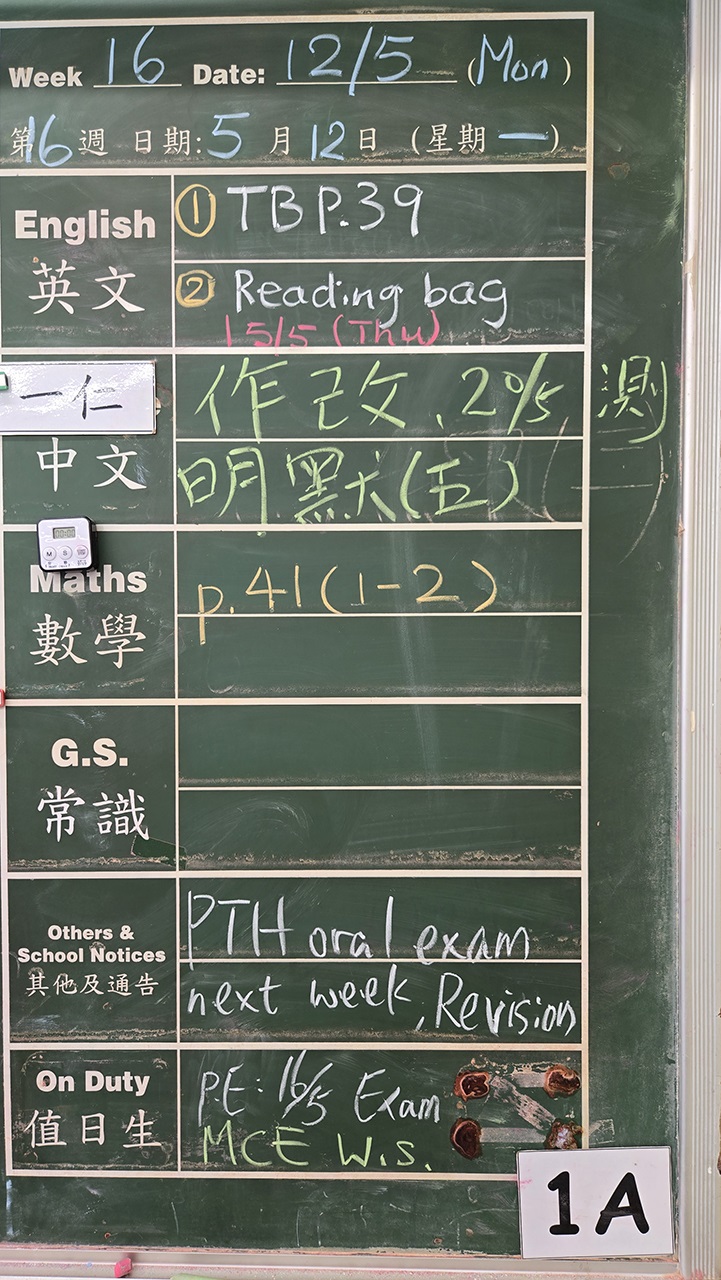 Week 16 Date: 12/5 (Mon)
第16週 日期:5月12日 (星期一)
English ① TB P.39
英文 ② Reading bag
15/5 (Thu)
一仁 作改、20/5 測
中文 明默(五) (一)
Maths p.41(1-2)
數學
G.S.
常識
Others & PTH oral exam
School Notices next week, Revision
其他及通告
On Duty P.E: 16/5 Exam
值日生 MCE W.S.
00:00
M S
1A